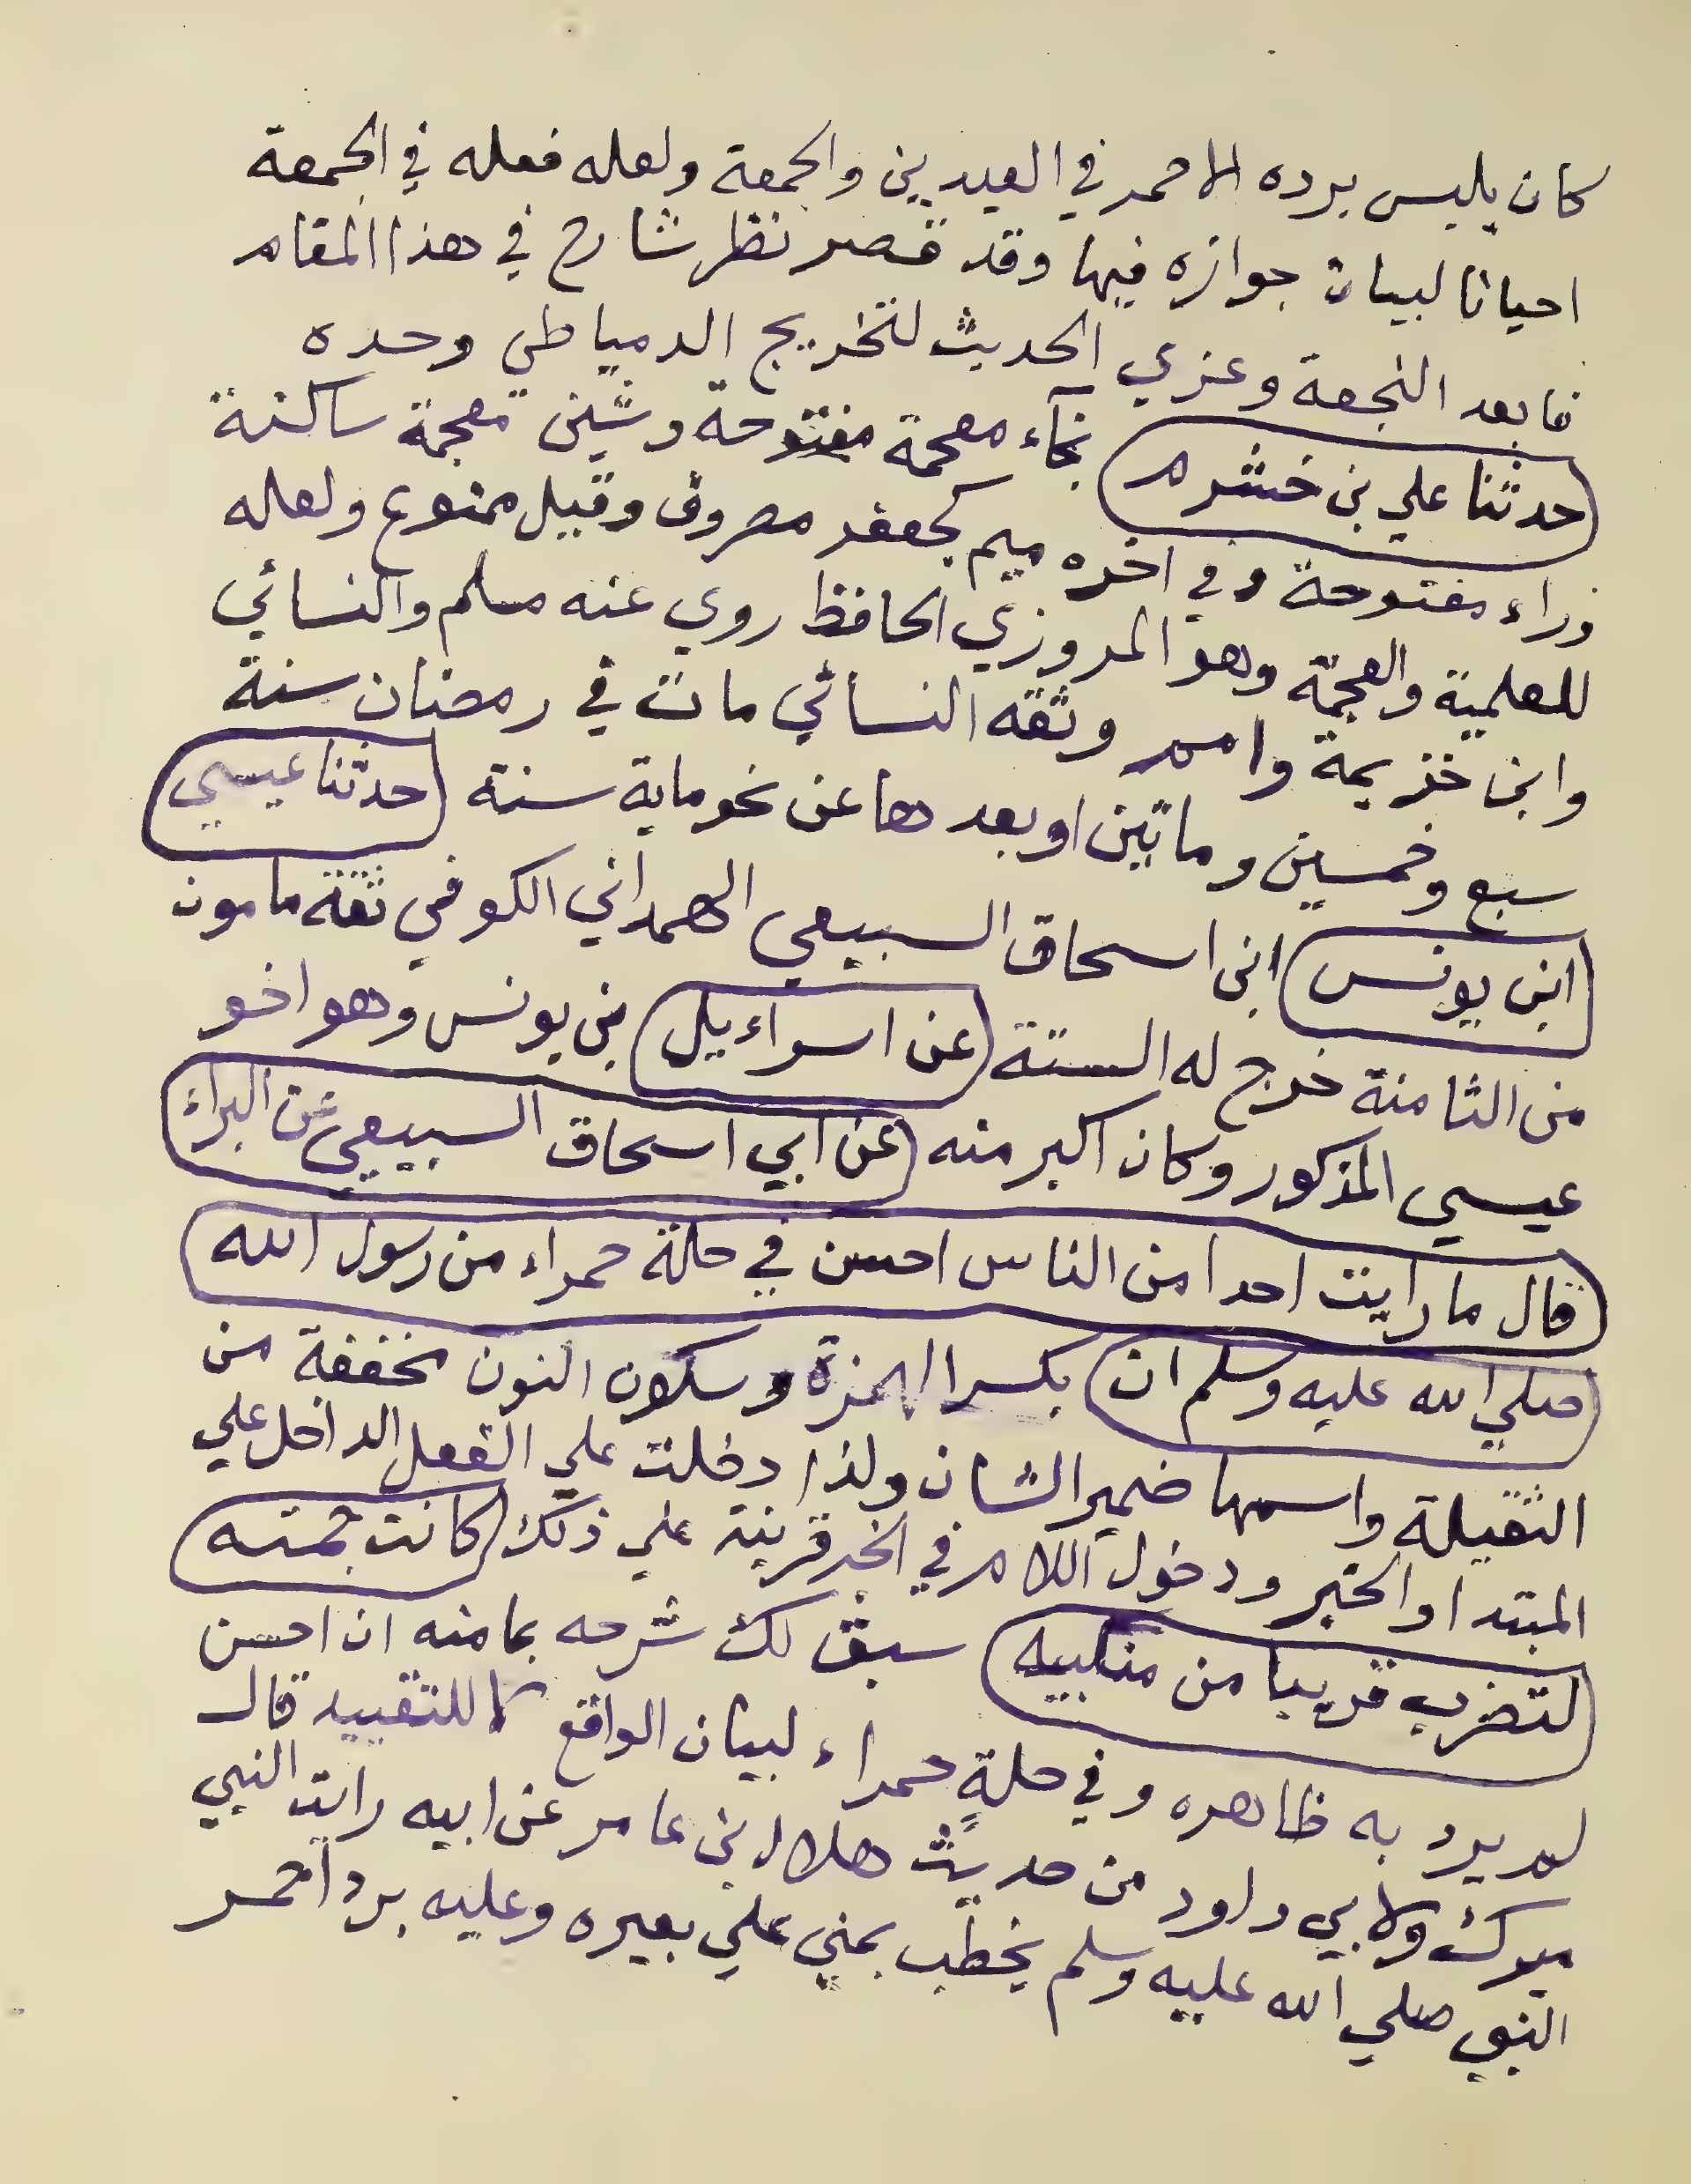 كان يلبس برده الاحمر في العيدين والجمعة ولعله فعله في الجمعة
احيانا لبيان جوازه فيها وقد قصر نظر شارح في هذا المقام
فابعد النجعة وعزي الحديث لتخريج الدمياطي وحده
حدثنا علي بن خشرم بخآء معجمة مفتوحة وشين معجمة ساكنة
فراء مفتوحة وفي اخره ميم كجعفر مصروف وقيل ممنوع ولعله
للعلمية والعجمة وهو المروزي الحافظ روي عنه مسلم والنسائي
وابن خزيمة وامم وثقه النسائي مات في رمضان سنة
سبع وخمسين وماتين او بعدها عن نحو ماية سنة حدثنا عيسي
ابن يونس ابن اسحاق السبيعي الهمداني الكوفي ثقة مامون
من الثامنة خرج له الستة عن اسراءيل بن يونس وهو اخو
عيسي المذكور وكان اكبر منه عن ابي اسحاق السبيعي عن البراء
قال ما رايت احدا من الناس احسن في حلة حمراء من رسول الله
صلي الله عليه وسلم ان بكسر الهمزة وسكون النون مخففة من
الثقيلة واسمها ضمير الشان ولذا دخلت علي الفعل الداخل علي
المبتدا والخبر ودخول اللام في الخبر قرينة علي ذلك كانت جمته
لتضرب قريبا من منكبيه سبق لك شرحه بما منه ان احسن
لم يرد به ظاهره وفي حلةٍ حمراء لبيان الواقع لا للتقييد قال
ميرك ولابي داود من حديث هلال بن عامر عن ابيه رايت النبي
النبي صلي الله عليه وسلم يخطب بمني علي بعيره وعليه برد احمر